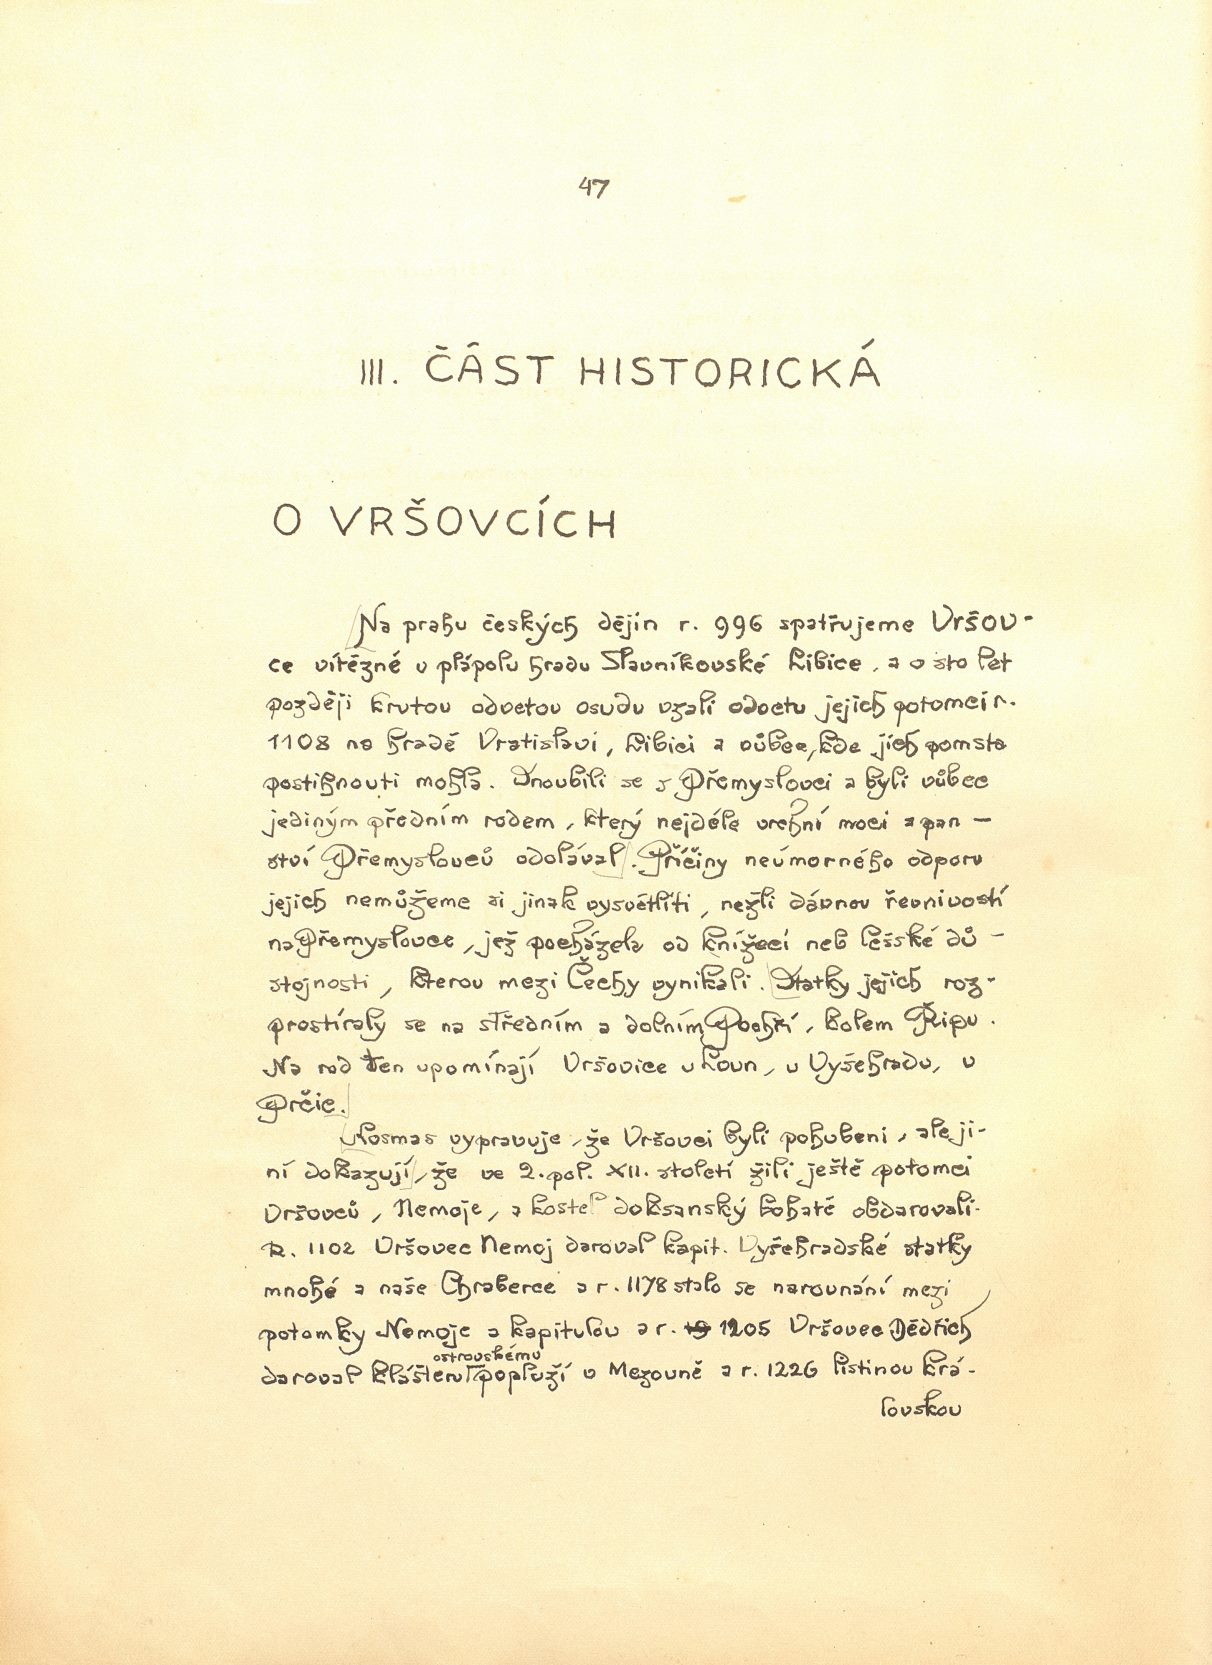 47
III. ČÁST HISTORICKÁ
O VRŠOVCÍCH
Na prahu českých dějin r. 996 spatřujeme Vršov-
ce vítězné v plápolu hradu Slavníkovské Libice, a o sto let
později krutou odvetou osudu vzali odvetu jejich potomci r.
1108 na hradě Vratislavi, Libici a vůbec, kde jich pomsta
postihnouti mohla. Snoubili se s Přemyslovci a byli vůbec
jediným předním rodem, který nejdéle vrchní moci a pan-
ství Přemyslovců odolával. Příčiny neúmorného odporu
jejich nemůžeme si jinak vysvětliti, nežli dávnou řevnivostí
na Přemyslovce, jež pocházela od knížecí neb lešské dů-
stojnosti, kterou mezi Čechy vynikali. Statky jejich roz-
prostíraly se na středním a dolním Poohří, kolem Řípu.
Na rod ten upomínají Vršovice u Loun, u Vyšehradu, u
Prčic.
Kosmas vypravuje, že Vršovci byli pohubeni, ale ji-
ní dokazují, že ve 2. pol. XII. století žili ještě potomci
Vršovců, Nemoje, a kostel doksanský bohatě obdarovali.
R. 1102 Vršovec Nemoj daroval kapit. Vyšehradské statky
mnohé a naše Chraberce a r. 1178 stalo se narovnání mezi
potomky Nemoje a kapitulou a r. 1205 Vršovec Dědřich
ostrovskému
daroval klášteru popluží v Mezouně a r. 1226 listinou krá-
lovskou